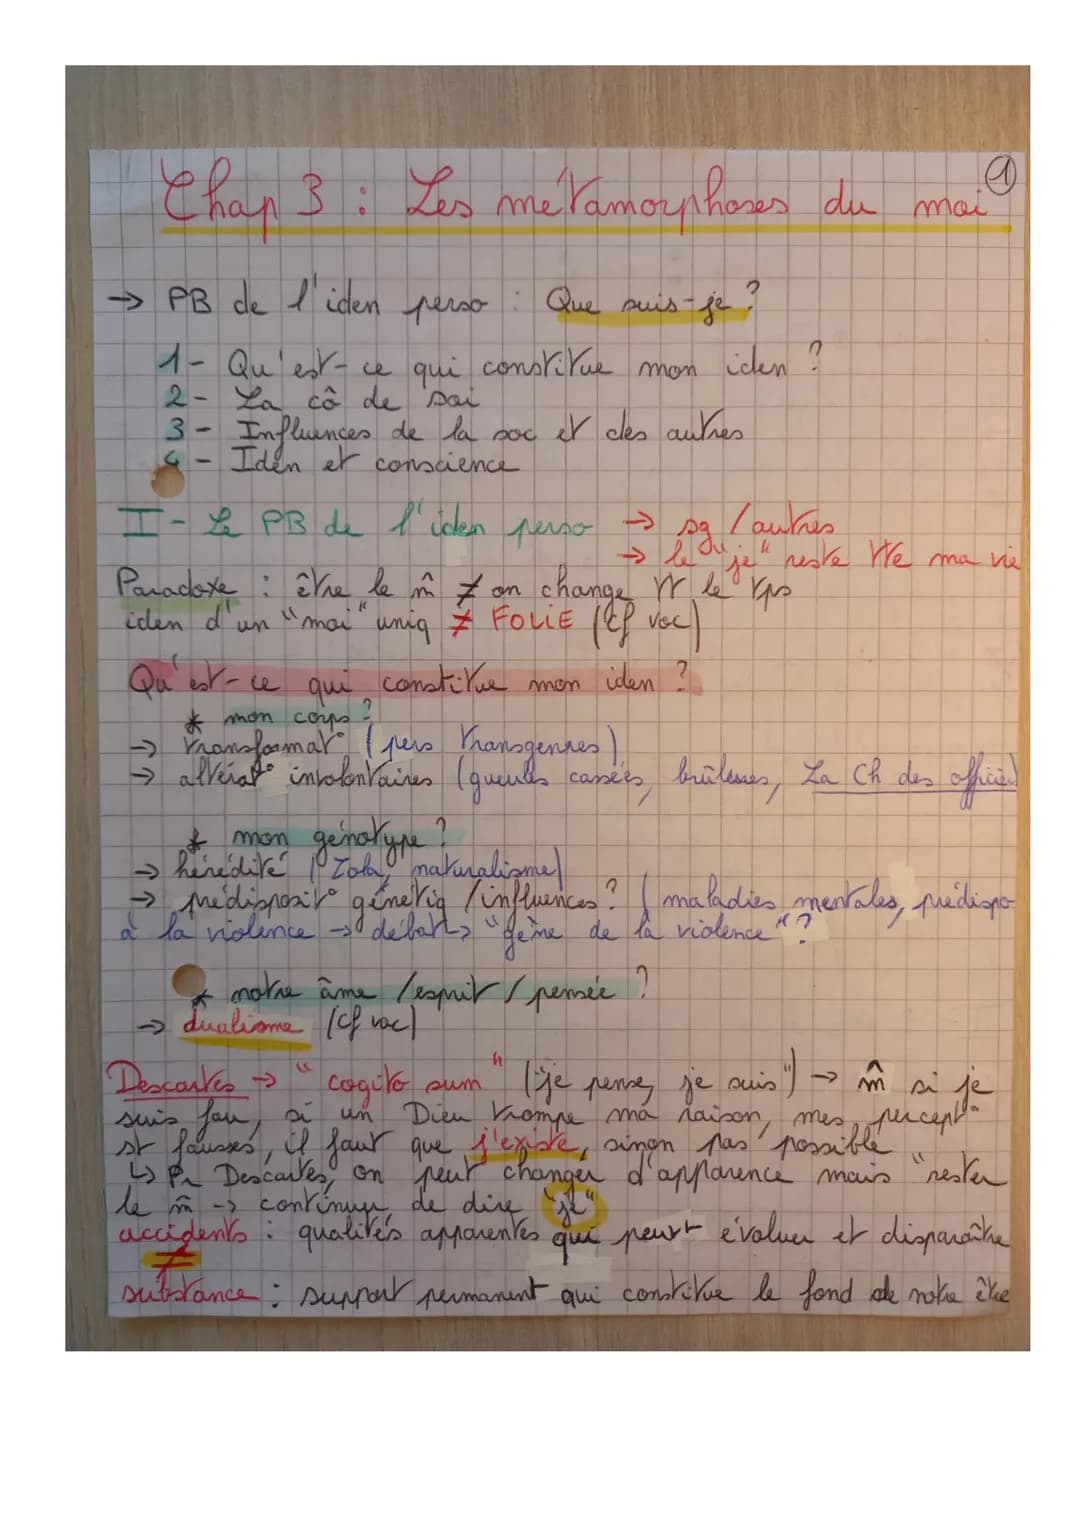 ①
Chap 3 : Les métamorphoses du moi
→ PB de l'iden perso : Que suis-je ?
1- Qu'est-ce qui constitue mon iden ?
2- La cô de soi
3- Influences de la soc et des autres
4- Iden et conscience
I- Le PB de l'iden perso → sg / autres
→ le "je" reste tte ma vie
Paradoxe : être le m̂ ≠ on change tt le tps
iden d'un "moi" uniq ≠ FOLIE (cf voc)
Qu'est-ce qui constitue mon iden ?
* mon corps ?
→ transformat° (pers transgenres)
→ altérat° involontaires (gueules cassées, brûlures, La Ch des officiers
* mon génotype ?
→ hérédité (Zola, naturalisme)
→ prédisposit° génétiq / influences ? (maladies mentales, prédispo
à la violence → débat → "gène de la violence" ?
* notre âme / esprit / pensée ?
→ dualisme (cf voc)
Descartes → "cogito sum" ("je pense, je suis") → m̂ si je
suis fou, si un Dieu trompe ma raison, mes percept°
st fausses, il faut que j'existe, sinon pas possible
↳ Pr Descartes, on peut changer d'apparence mais "rester
le m̂ → continuer de dire "je"
accidents : qualités apparentes qui peuvt évoluer et disparaître
≠
substance : support permanent qui constitue le fond de notre être